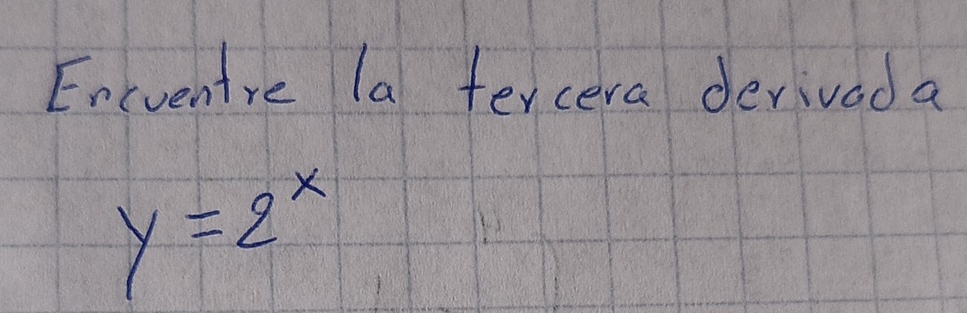 Encuentre la tercera derivada
y = 2^x